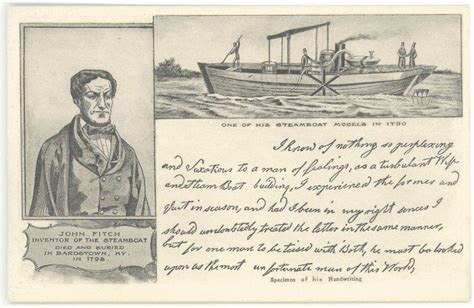 ONE OF HIS STEAMBOAT MODELS IN 1790
I know of nothing so perplexing
and vexatious to a man of feelings, as a turbulant Wife
and Steam Boat building, I experienced the former and
quit in season, and had I been in my right sences I
should undoubtedly treated the latter in the same manner,
but for one man to be teised with Both, he must be looked
upon as the most unfortunate man of this World,
Specimen of his Handwriting
JOHN FITCH
INVENTOR OF THE STEAMBOAT
DIED AND BURIED
IN BARDSTOWN, KY.
IN 1798.